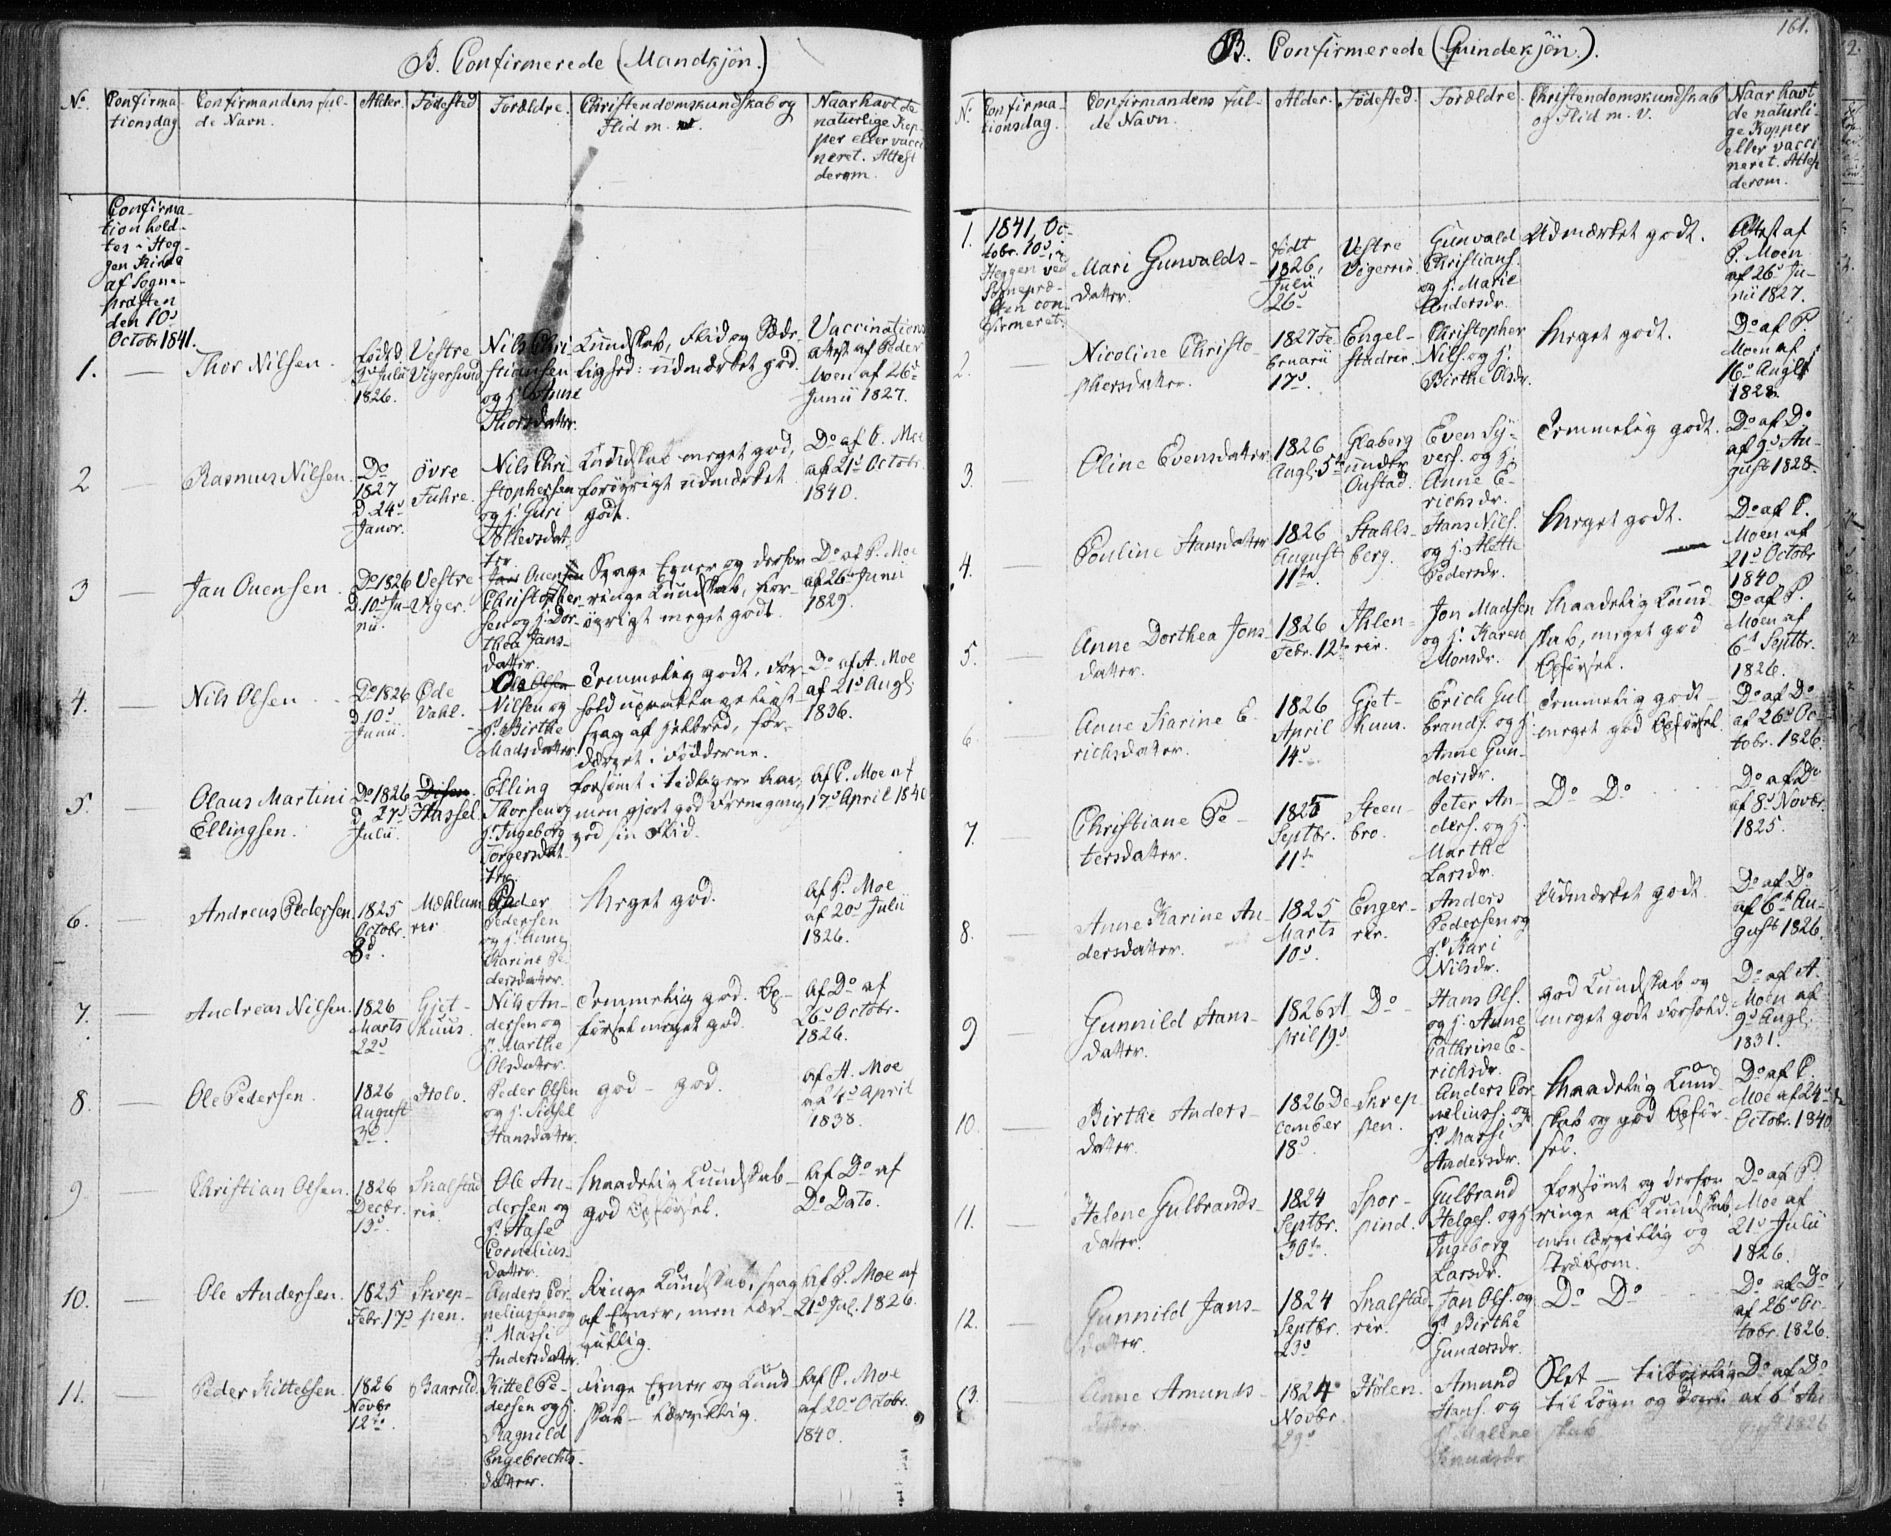 B. Confirmerede (Mandkjön.)
No.
Confirma-
tionsdag
Confirmandens ful-
de Navn.
Alder.
Födested
Forældre.
Christendomskundskab og
Flid m. v.
Naar havt de
naturlige Kop-
per eller vacci
neret. Attest
derom.
Confirma-
tion hold-
ten i Heg-
gen Kirke
af Sogne-
præsten
den 10d
Octobr 1841.
1.
Thor Nilsen.
Födt d.
Julii
1826.
Vestre
Vigersund
Nils Chri-
stiansen
og h: Anne
Thorsdatter.
Kundskab, Flid og Sæde-
lighed: udmærket god
Vaccinations
attest af Peder
Moen af 26d
Junii 1827.
2
Rasmus Nilsen.
Do
1827
d. 24d
Janvr.
övre
Fuhre.
Nils Chri-
stophersen
og h: Guri
Tollevsdat-
ter.
Kundskab meget god,
forövrigt udmærket
godt.
Do af P. Moe
af 21d Octobr.
1840.
3
Jan Ouensen.
Do 1826
d. 10d Ju-
nii.
Vestre
Viger.
Ouensen
Christopher-
sen og h: Dor-
thea Jans-
datter.
Svage Evner og derfor
ringe Kundskab, for-
övrigt meget godt.
Do af P. Moe
af 26d Junii
1829.
4.
Nils Olsen
Do 1826
d 10d
Junii.
Öde
Vahl.
Ole Olsen
Nilsen og
h: Birthe
Madsdatter.
Temmelig godt, For-
hold upaaklageligt
svag af Helbred, for-
dærvet i Födderne.
Do af A. Moe
af 21d Augl
1836.
5
Olaus Martini
Ellingsen.
Do 1826
d. 27d
Julii
Disen
Hassel
Elling
Thorsen og
h: Ingeborg
Torgersdat-
ter.
Forsömt i tidligere Aar,
men gjort god Fremgang
ved sin Flid.
Af P. Moe af
17d April 1840
6.
Andreas Pedersen
1825
Octobr.
8d.
Mæhlum
rie
Peder
Pedersen
og h: Anne
Karine Pe-
dersdatter.
Meget god.
Af P. Moe
af 20d Julii
1826.
7.
Andreas Nilsen.
1826
Marts
22d
Gjet-
huus.
Nils An-
dersen og
h: Marthe
Olsdatter.
Temmelig god. Op-
försel meget god.
Af Do af
26d Octobr.
1826.
8.
Ole Pedersen.
1826
August
3d.
Holo.
Peder Olsen
og h: Sidsel
Hansdatter.
god – god.
af A. Moe
af 4d April
1838.
9
Christian Olsen.
1826
Decbr.
19d.
Snalstad
rie.
Ole An-
dersen og
h: Aase
Cornelius-
datter.
Maadelig Kundskab –
god Opförsel.
Af Do af
Do Dato.
10.
Ole Andersen.
1825
Febr. 17d
Skrep-
pen.
Anders Cor-
neliussen og
h: Massi
Andersdatter.
Ringe Kundskab, svag
af Evner, men lær-
villig.
Af P. Moe af
21d Jul. 1826.
11.
Peder Kittelsen.
1826
Novbr
12te.
Baarud.
Kittel Pe-
dersen og h:
Ragnild
Engebrechts-
datter.
Ringe Evner og Kund
skab – lærvillig.
Af P. Moe
af 20d Octobr.
1840.
161.
B. Confirmerede (Qvindekjön.).
No.
Confirma-
tionsdag.
Confirmandens ful-
de Navn.
Alder.
Födested.
Forældre.
Christendomskundskab
og Flid m. v.
Naar havt
de naturli-
ge Kopper
eller vacci
neret. Attest
derom.
1.
1841, Oc-
tobr. 10d, i
Heggen ved
Sognepræ-
sten con-
firmeret.
Mari Gunvalds-
datter.
födt
1826,
Julii
26d
Vestre
Vigerrie.
Gunvald
Christians.
og h: Marie
Andersdr.
Udmærket godt.
Attest af
P. Moen
af 26d Ju-
nii 1827.
2.
Nicoline Christo-
phersdatter.
1827 Fe
bruarii
17d.
Engel-
stadrie.
Christopher
Nils. og h:
Birthe Olsdr.
Meget godt.
Do af P.
Moen af
16d Augst
1828.
3.
Eline Evensdatter
1826
Augl. 5te
Glaberg
under
Onstad.
Even Sy-
vers. og h:
Anne E-
richsdr.
Temmelig godt.
Do af Do
af 9d Au-
gust 1828.
4.
Pouline Hansdatter
1826
August
11te.
Stahls-
berg.
Hans Nils.
og h: Alette
Pedersdr.
Meget godt.
Do af P.
Moen af
21d Octobr
1840
5.
Anne Dorthea Jons-
datter.
1826
Febr. 12te
Ihlen-
rie.
Jon Madsen
og h: Karen
Monsdr.
Maadelig Kund
skab, meget god
Opförsel.
Do af P.
Moen af
6d Septbr.
1826.
6.
Anne Karine E-
richsdatter.
1826
April
14d.
Gjet-
huus.
Erich Gul
brands. og h:
Anne Gun-
dersdr.
Temmelig godt –
meget god Opförsel
Do af Do
af 26d Oc-
tobr. 1826.
7.
Christiane Pe-
tersdatter.
1825
Septbr.
11te
Steen-
bro.
Peter An-
ders. og h:
Marthe
Larsdr.
Do Do
Do af Do
af 8d Novbr.
1825.
8.
Anne Karine An-
dersdatter.
1825
Marts
10d.
Enger-
rie.
Anders
Pedersen og
h: Kari
Nilsdr.
Udmærket godt
Do af Do
af 6d Au-
gust 1826.
9
Gunnild Hans-
datter.
1826 A-
pril 19d
Do
Hans Ols.
og h: Anne
Cathrine E-
richsdr.
god Kundskab og
meget godt Forhold.
Do af A.
Moen af
9d Augl.
1831.
10.
Birthe Anders-
datter.
1826 De-
cember
18d.
Skrep
pen.
Anders Cor-
neliuss. og
h: Massi
Andersdr.
Maadelig Kund
skab og god Opför-
sel.
Do af P.
Moe af 24d
Octobr. 1840
11.
Helene Gulbrands-
datter.
1824
Septbr.
30te.
Spor-
pind.
Gulbrand
Helges. og h:
Ingeborg
Larsdr.
Forsömt og derfor
ringe af Kundskab,
men lærvillig og
stræbsom.
Do af P.
Moe af
21d Julii
1826.
12.
Gunnild Jans-
datter.
1824
Septbr.
23d
Snalstad
rie.
Jan Ols. og
h: Birthe
Gundersdr.
Do Do
Do af Do
af 26d Oc-
tobr. 1826.
13.
Anne Amunds-
datter.
1824
Novbr.
29d
Hölen.
Amund
Hans. og
h: Malene
Knudsdr.
Slet – tilböielig
til Lögn og
skab
Do af Do
af 6d Au
gust 1826